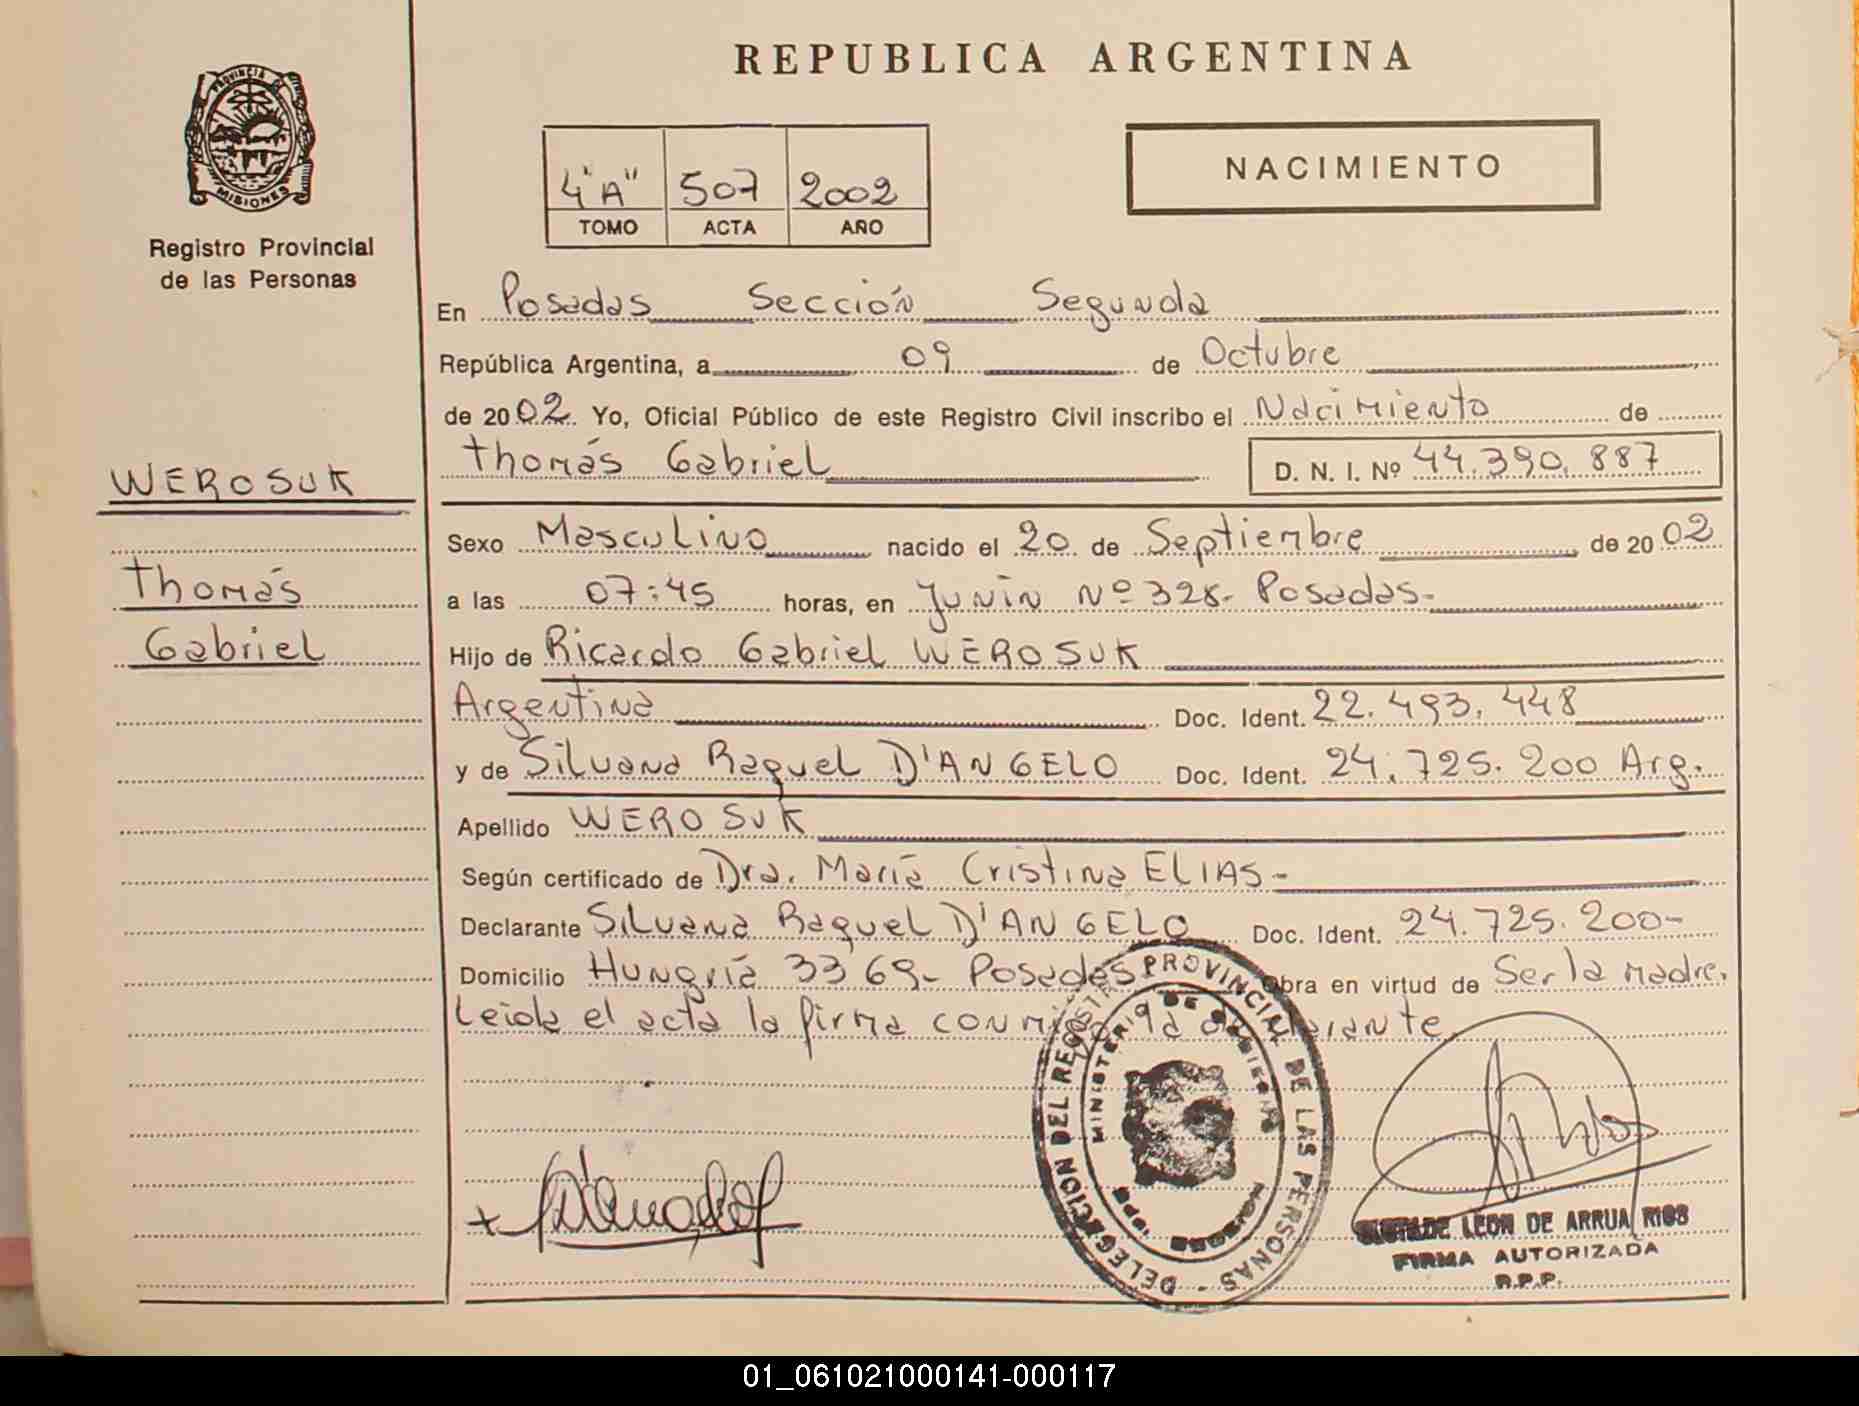 REPUBLICA ARGENTINA
PROVINCIA DE
MISIONES
Registro Provincial
de las Personas
4"A" 507 2002
TOMO ACTA AÑO
NACIMIENTO
En Posadas Sección Segunda
República Argentina, a 09 de Octubre
de 2002. Yo, Oficial Público de este Registro Civil inscribo el Nacimiento de
Thomás Gabriel D. N. I. Nº 44.390.887
WEROSUK
Thomás
Gabriel
Sexo Masculino nacido el 20 de Septiembre de 2002
a las 07:45 horas, en Junín Nº 328- Posadas-
Hijo de Ricardo Gabriel WEROSUK
Argentina Doc. Ident. 22.493.448
y de Silvana Raquel D'ANGELO Doc. Ident. 24.725.200 Arg.
Apellido WEROSUK
Según certificado de Dra. María Cristina ELIAS-
Declarante Silvana Raquel D'ANGELO Doc. Ident. 24.725.200-
Domicilio Hungría 3369- Posadas Obra en virtud de Ser la madre.
Leida el acta la firma conmigo la declarante.
DELEGACION DEL REGISTRO PROVINCIAL DE LAS PERSONAS -
MINISTERIO DE GOBIERNO
LEON DE ARRUA RIOS
FIRMA AUTORIZADA
R.P.P.
01_061021000141-000117